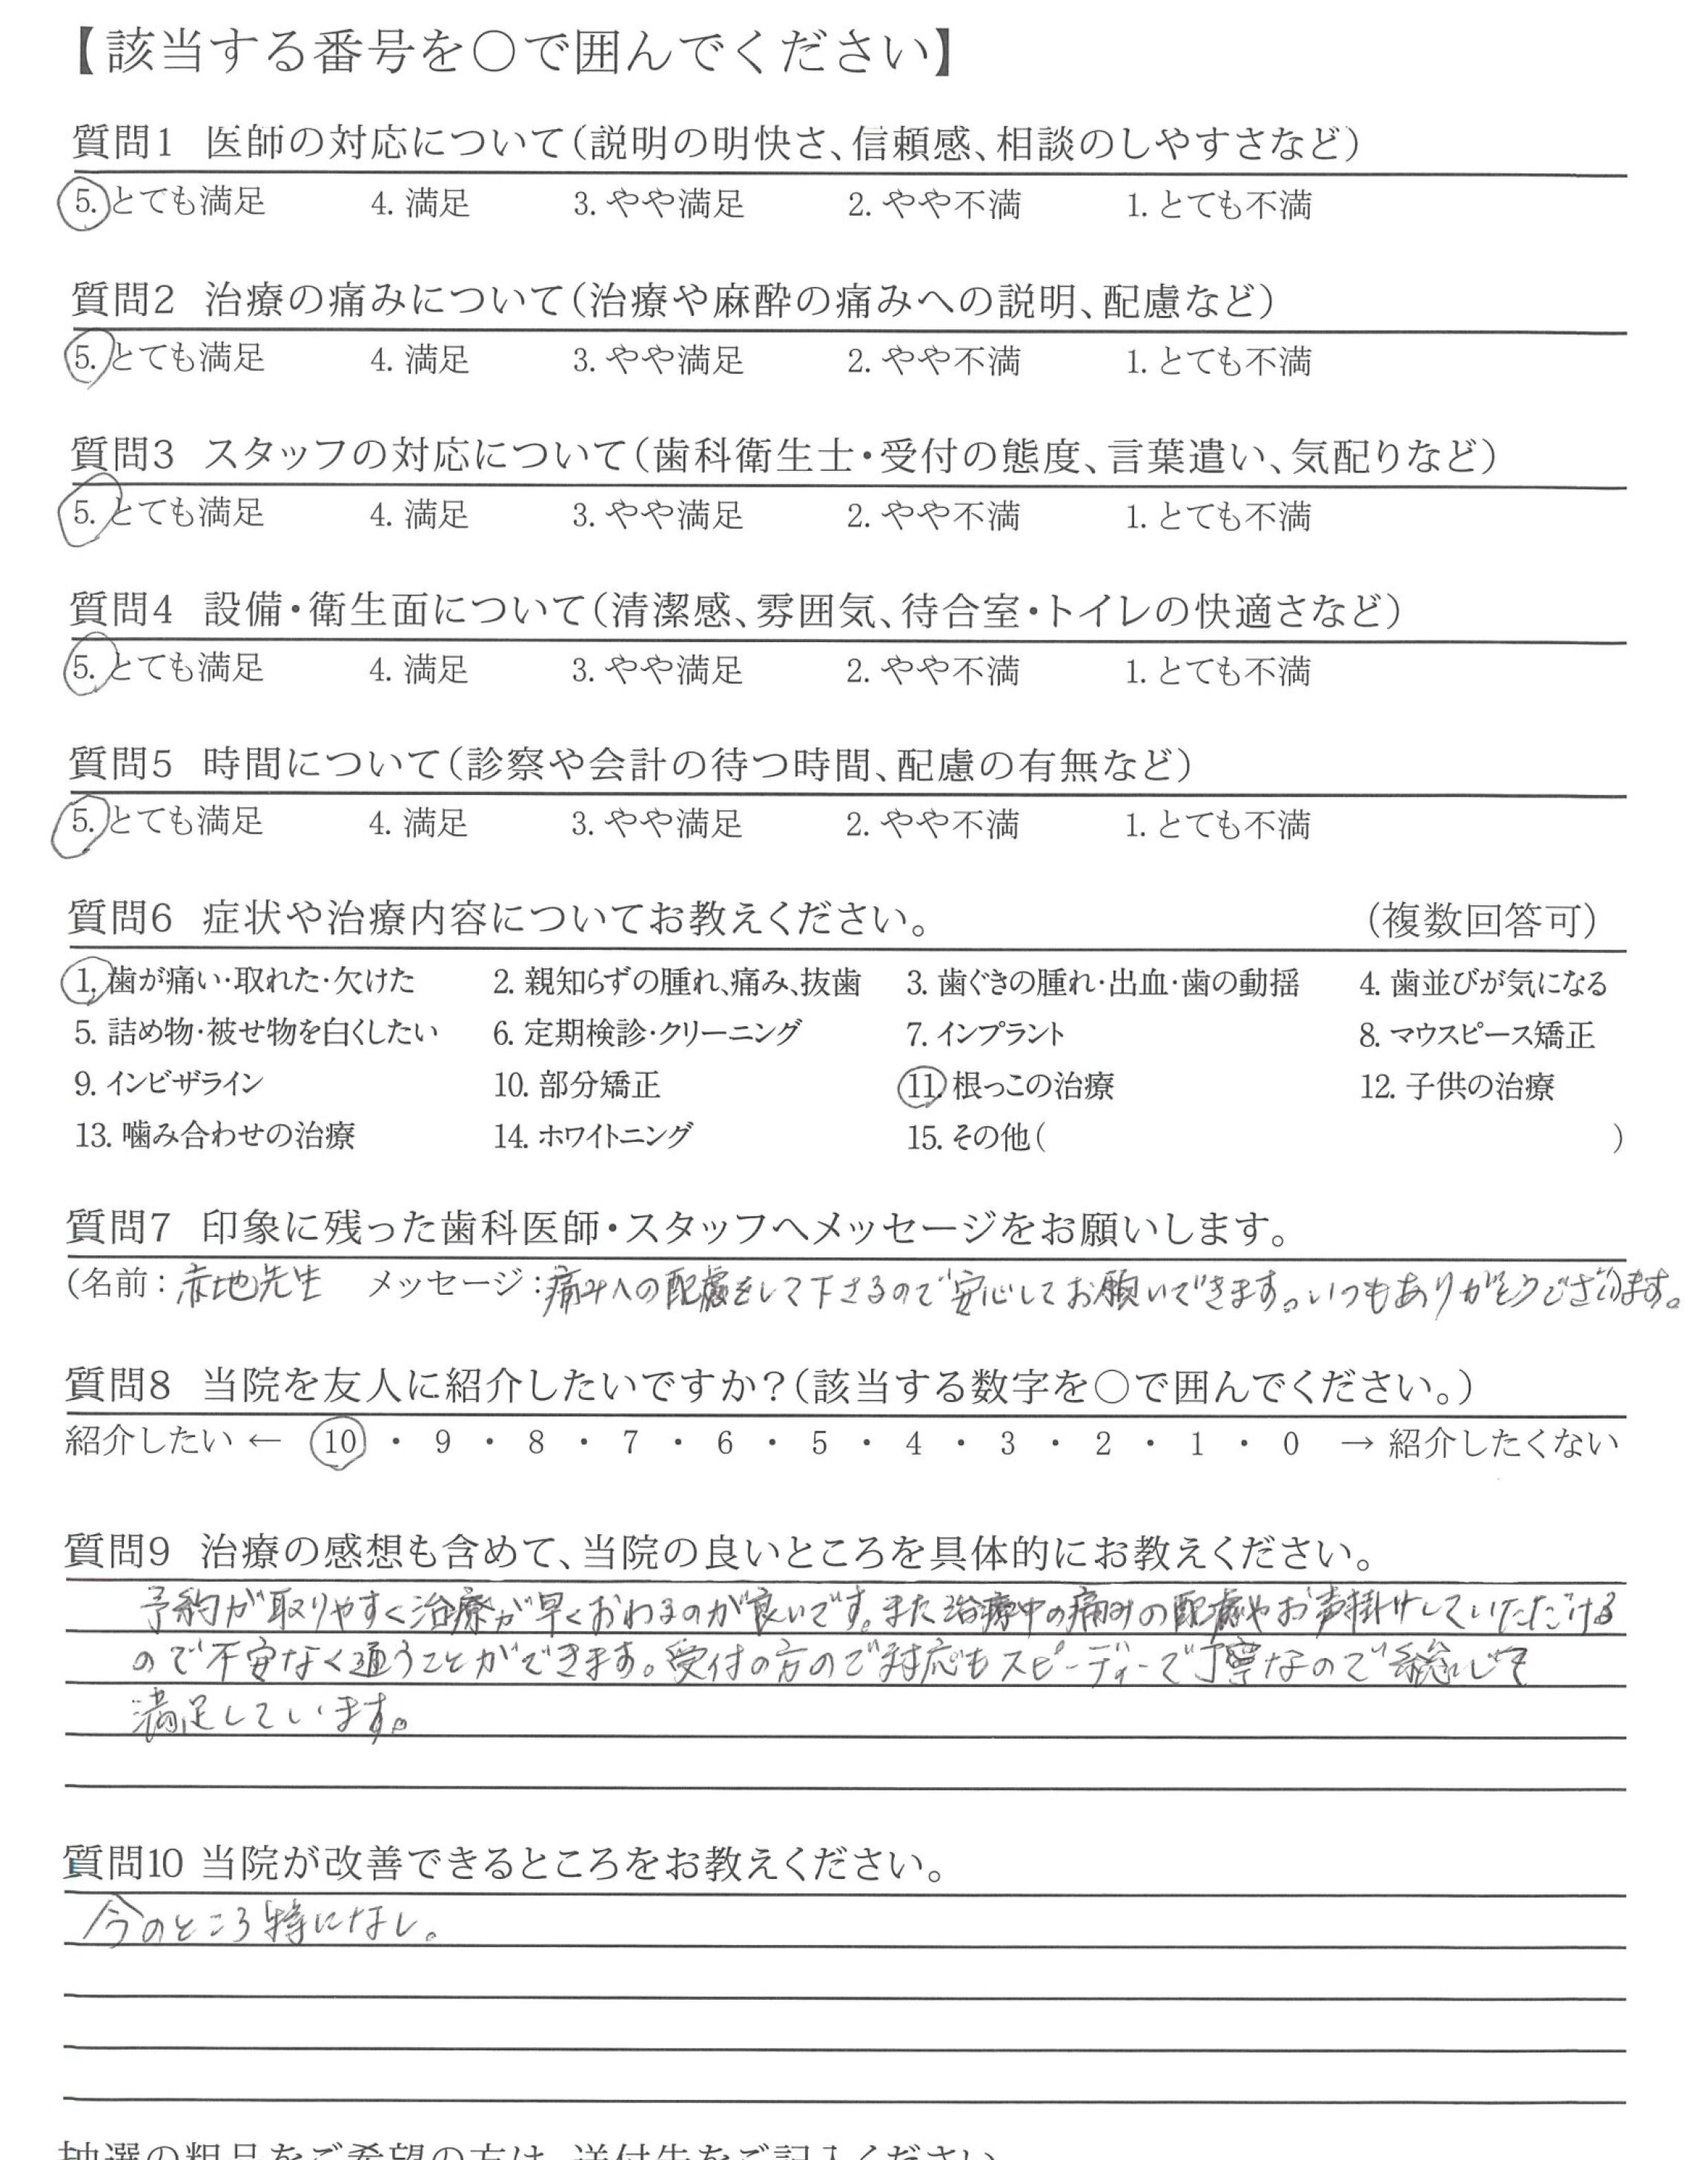 【該当する番号を○で囲んでください】
質問1 医師の対応について(説明の明快さ、信頼感、相談のしやすさなど)
5. とても満足 4. 満足 3. やや満足 2. やや不満 1. とても不満
質問2 治療の痛みについて(治療や麻酔の痛みへの説明、配慮など)
5. とても満足 4. 満足 3. やや満足 2. やや不満 1. とても不満
質問3 スタッフの対応について(歯科衛生士・受付の態度、言葉遣い、気配りなど)
5. とても満足 4. 満足 3. やや満足 2. やや不満 1. とても不満
質問4 設備・衛生面について(清潔感、雰囲気、待合室・トイレの快適さなど)
5. とても満足 4. 満足 3. やや満足 2. やや不満 1. とても不満
質問5 時間について(診察や会計の待つ時間、配慮の有無など)
5. とても満足 4. 満足 3. やや満足 2. やや不満 1. とても不満
質問6 症状や治療内容についてお教えください。 (複数回答可)
1. 歯が痛い・取れた・欠けた 2. 親知らずの腫れ、痛み、抜歯 3. 歯ぐきの腫れ・出血・歯の動揺 4. 歯並びが気になる
5. 詰め物・被せ物を白くしたい 6. 定期検診・クリーニング 7. インプラント 8. マウスピース矯正
9. インビザライン 10. 部分矯正 11. 根っこの治療 12. 子供の治療
13. 噛み合わせの治療 14. ホワイトニング 15. その他( )
質問7 印象に残った歯科医師・スタッフへメッセージをお願いします。
(名前：赤地先生 メッセージ：痛みへの配慮をして下さるので安心してお願いできます。いつもありがとうございます。
質問8 当院を友人に紹介したいですか？(該当する数字を○で囲んでください。)
紹介したい ← 10 ・ 9 ・ 8 ・ 7 ・ 6 ・ 5 ・ 4 ・ 3 ・ 2 ・ 1 ・ 0 → 紹介したくない
質問9 治療の感想も含めて、当院の良いところを具体的にお教えください。
予約が取りやすく治療が早くおわるのが良いです。また治療中の痛みの配慮やお声掛けしていただける
ので不安なく通うことができます。受付の方のご対応もスピーディーで丁寧なので総じて
満足しています。
質問10 当院が改善できるところをお教えください。
今のところ特になし。
抽選の粗品をご希望の方は、送付先をご記入ください